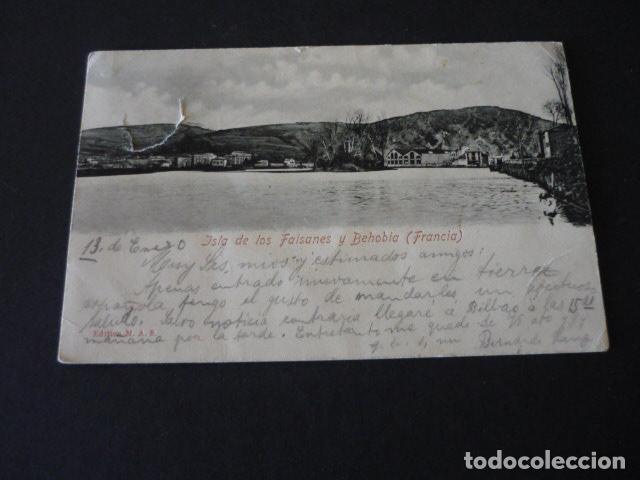 Isla de los Faisanes y Behobia (Francia)
13. de Enero
Muy Sres. mios y estimados amigos:
Apenas entrado nuevamente en tierra
española tengo el gusto de mandarles un afectuoso
saludo. Salvo noticia contraria llegaré a Bilbao a las
mañana por la tarde. Entretanto me quedo de Vs
q. b. s. m. Bernardo
Edición M. A. B.
todocoleccion.com